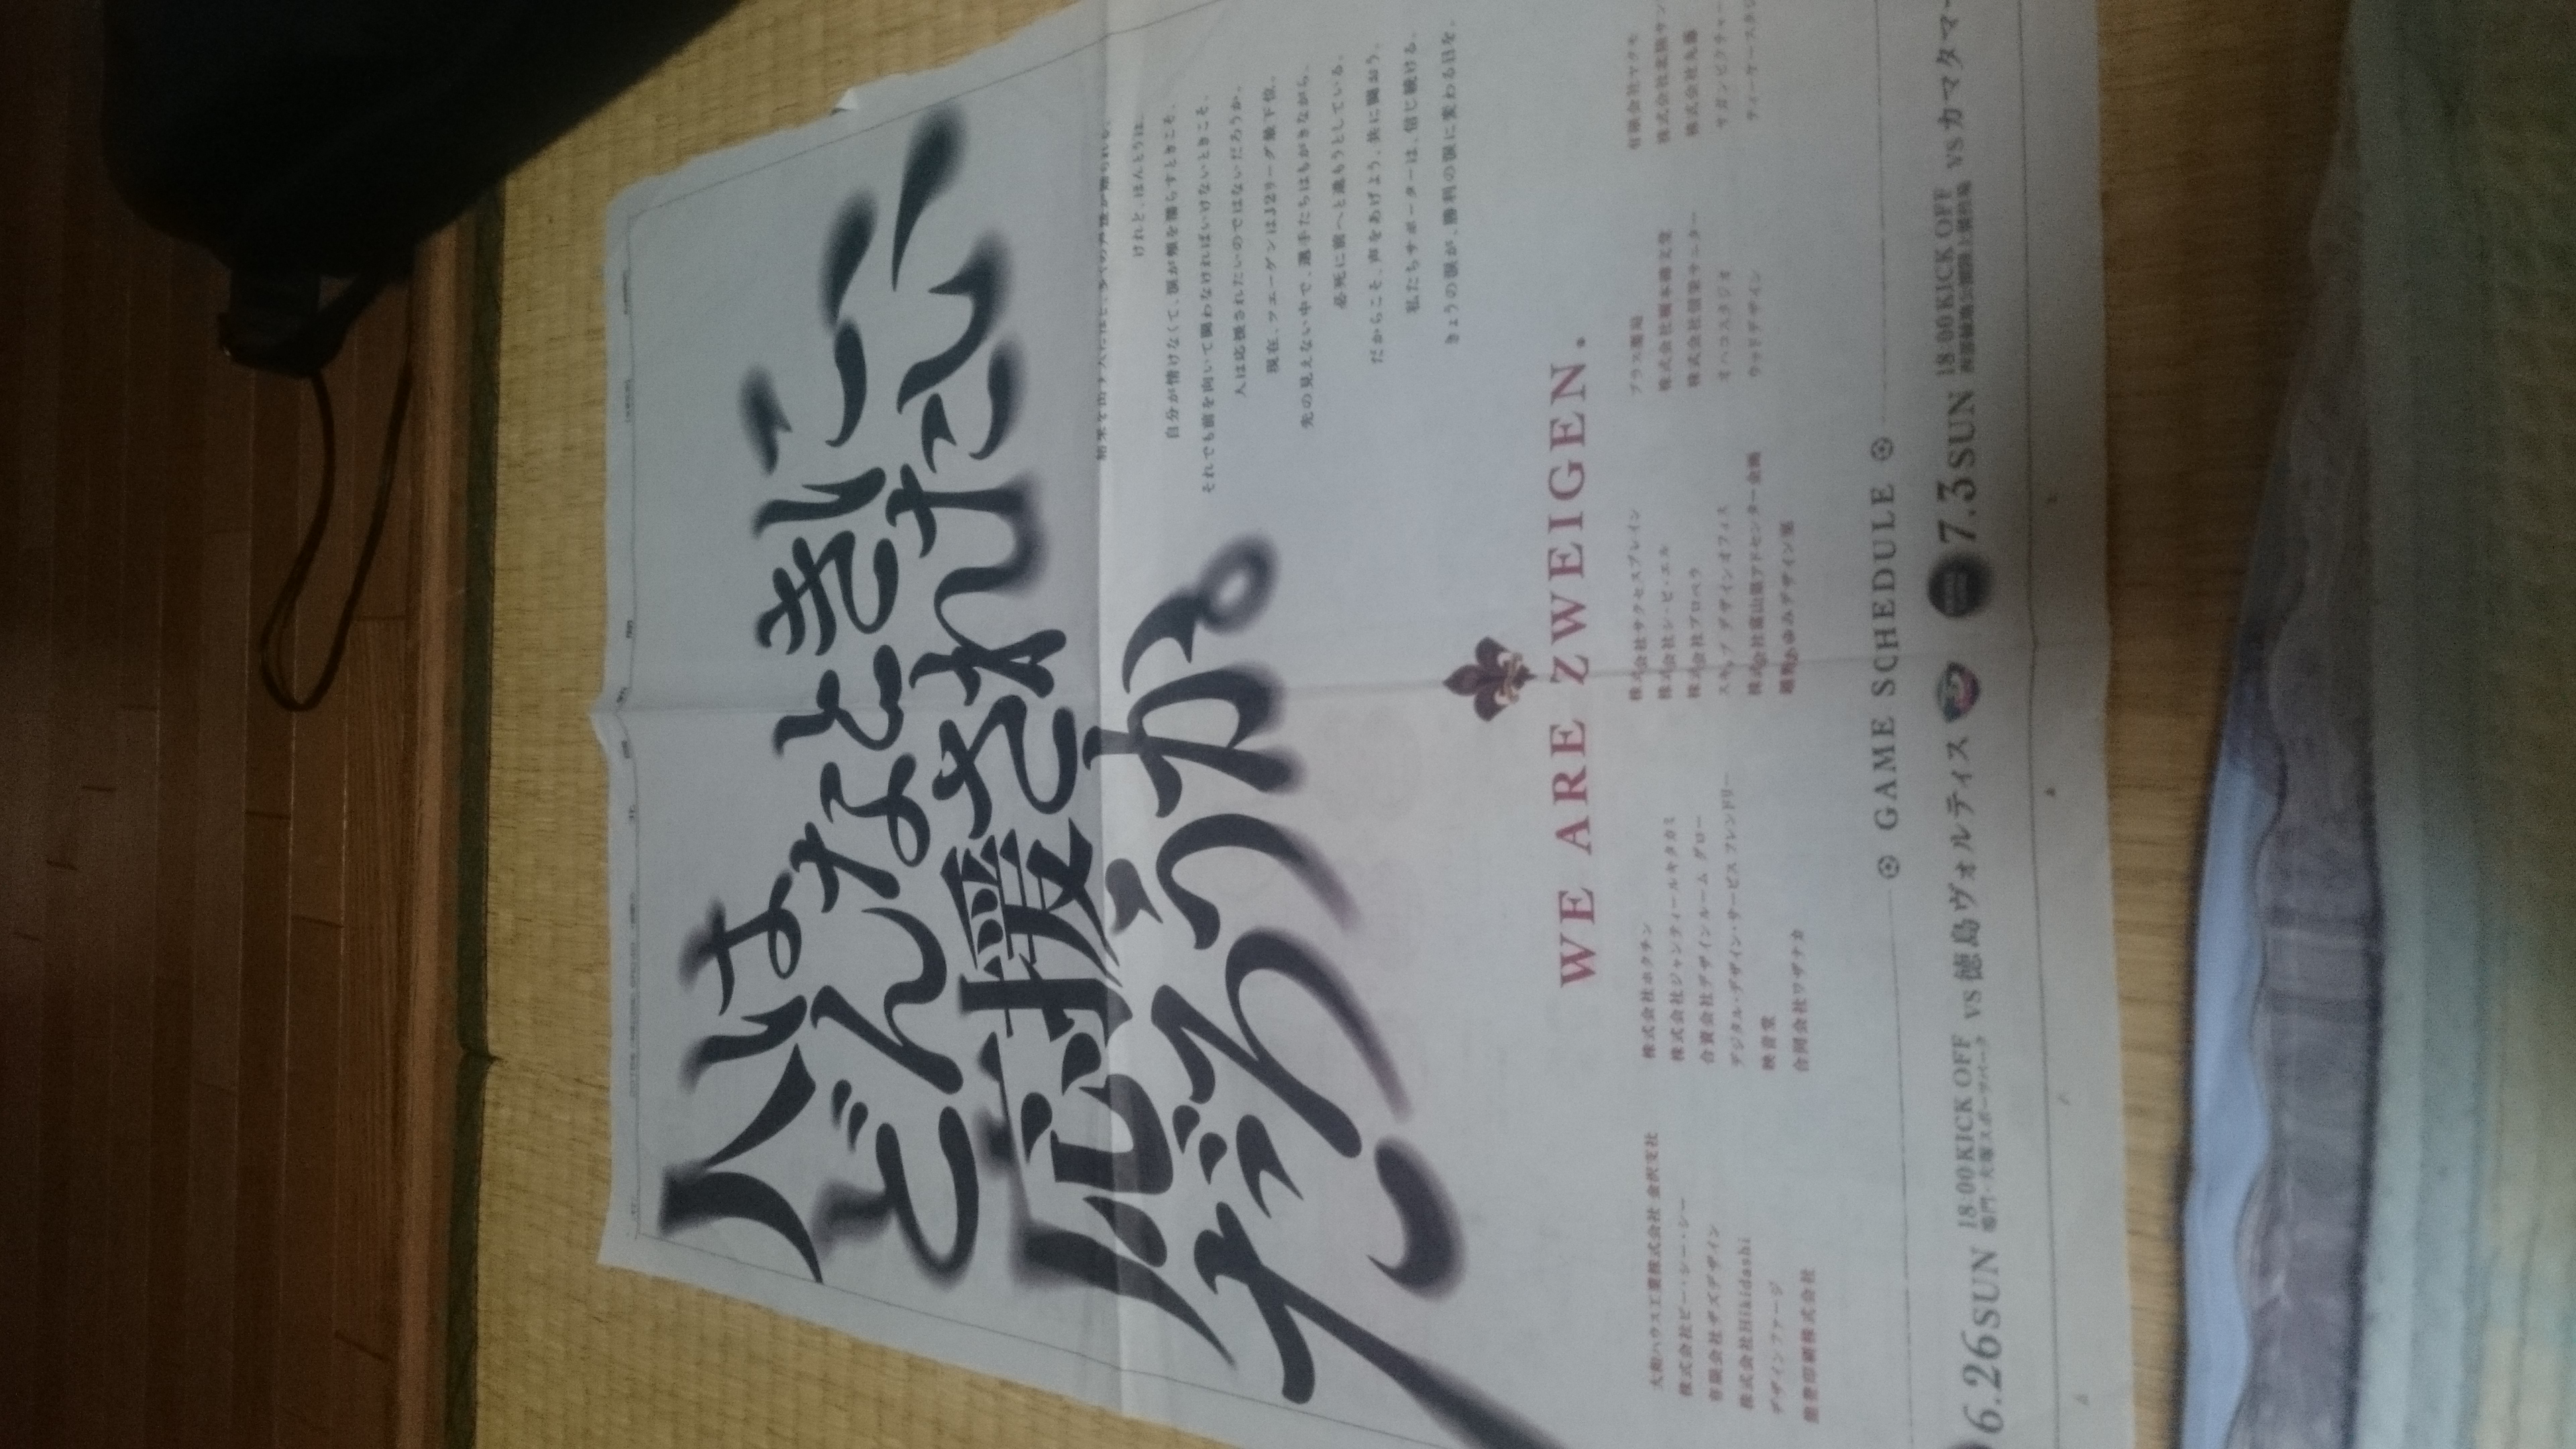 人は
どんなときに
応援されたい
だろうか。
結果を出す人には
けれど、ほんとうは、
自分が情けなくて、涙が頬を濡らすときこそ、
それでも前を向いて闘わなければいけないときこそ、
人は応援されたいのではないだろうか。
現在、ツエーゲンはJ2リーグ最下位。
先の見えない中で、選手たちはもがきながら、
必死に前へと進もうとしている。
だからこそ、声をあげよう。共に闘おう。
私たちサポーターは、信じ続ける。
きょうの涙が、勝利の涙に変わる日を。
WE ARE ZWEIGEN.
大和ハウス工業株式会社 金沢支社
株式会社ビー・シー・シー
有限会社ザズデザイン
株式会社Hikidashi
デザインファージ
能登印刷株式会社
株式会社ホクチン
株式会社ジャンティールキタカミ
合資会社デザインルーム グロー
デジタル・デザイン・サービス フレンドリー
映音堂
合同会社ワザナカ
株式会社サクセスブレイン
株式会社シ・ビ・エル
株式会社プロペラ
スキップ デザインオフィス
株式会社富山県アドセンター企画
プラス機箱
株式会社橋本確文堂
オハコスタジオ
ウッドデザイン
有限会社ヤクモ
株式会社北陸サン
株式会社丸藤
サガンピクチャー
ティーケースタジ
GAME SCHEDULE
6.26SUN 18:00KICK OFF vs 徳島ヴォルティス
鳴門・大塚スポーツパーク
7.3SUN 18:00KICK OFF vs カマタマー
西部緑地公園陸上競技場